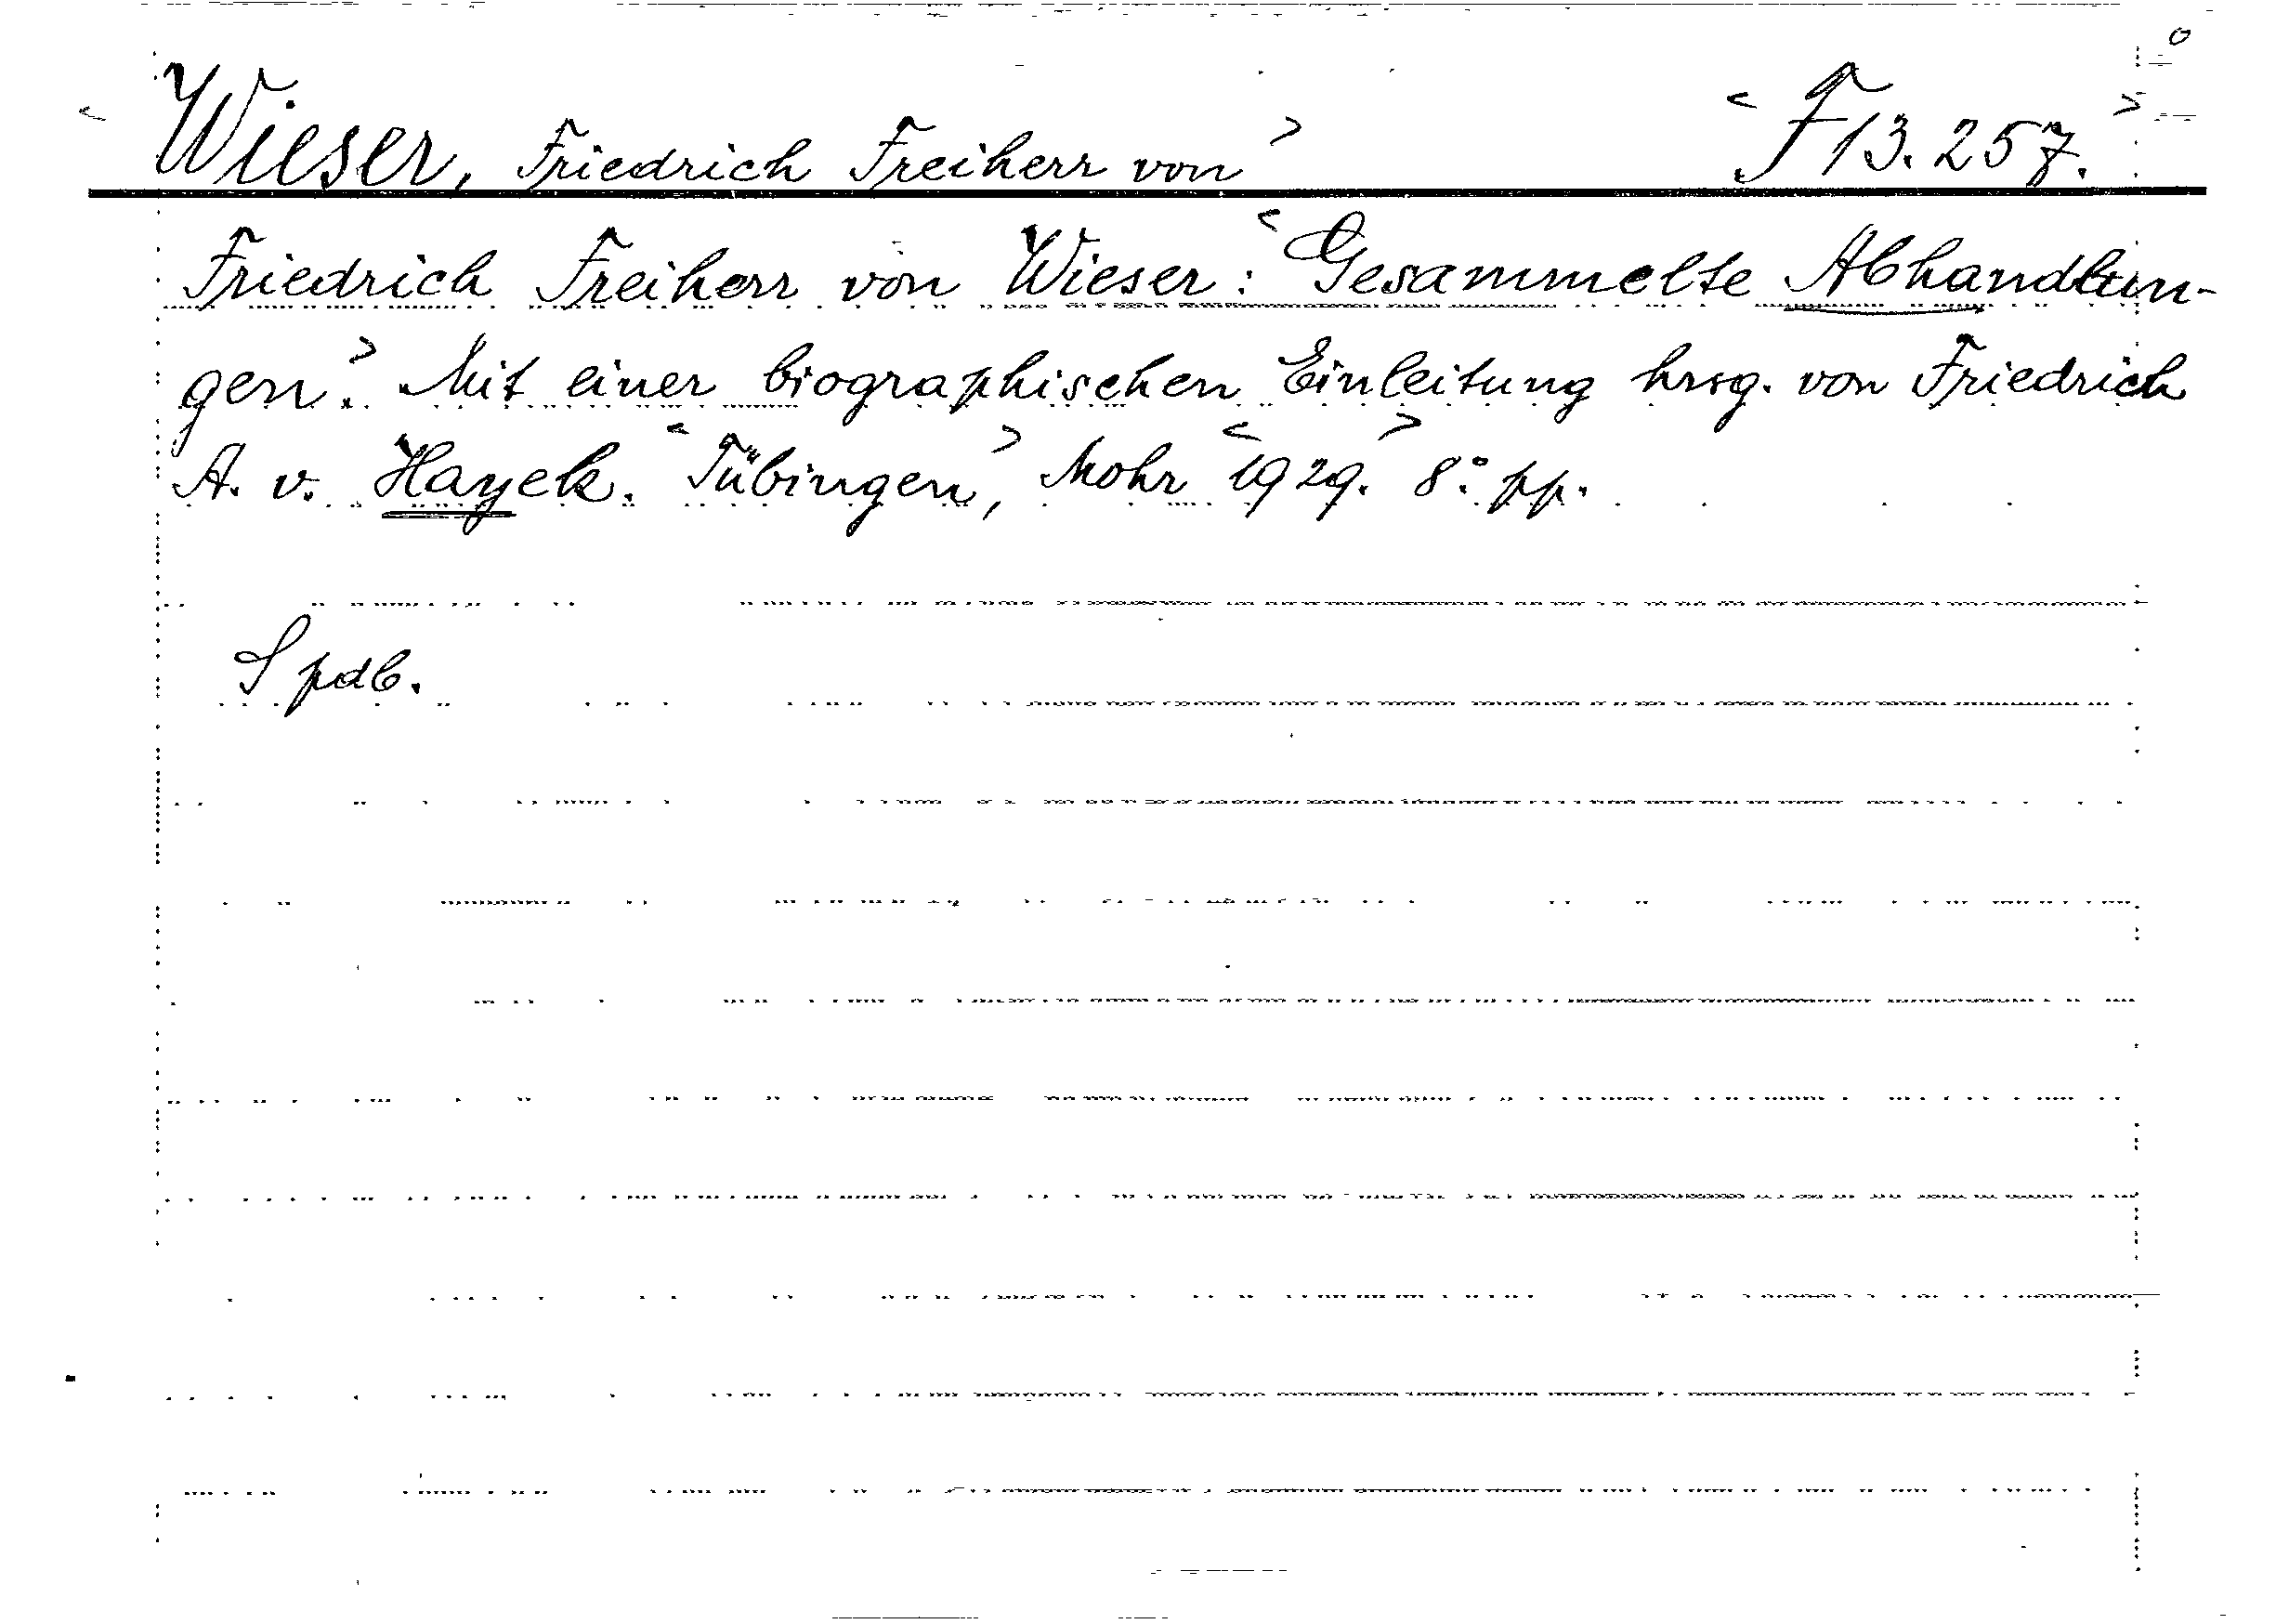 < Wieser, Friedrich Freiherr von > < F 13.257. >
Friedrich Freiherr von Wieser: < Gesammelte Abhandlun-
gen. > Mit einer biographischen Einleitung hrsg. von Friedrich
A. v. Hayek. < Tübingen >, Mohr < 1929. > 8° pp.
S pdb.